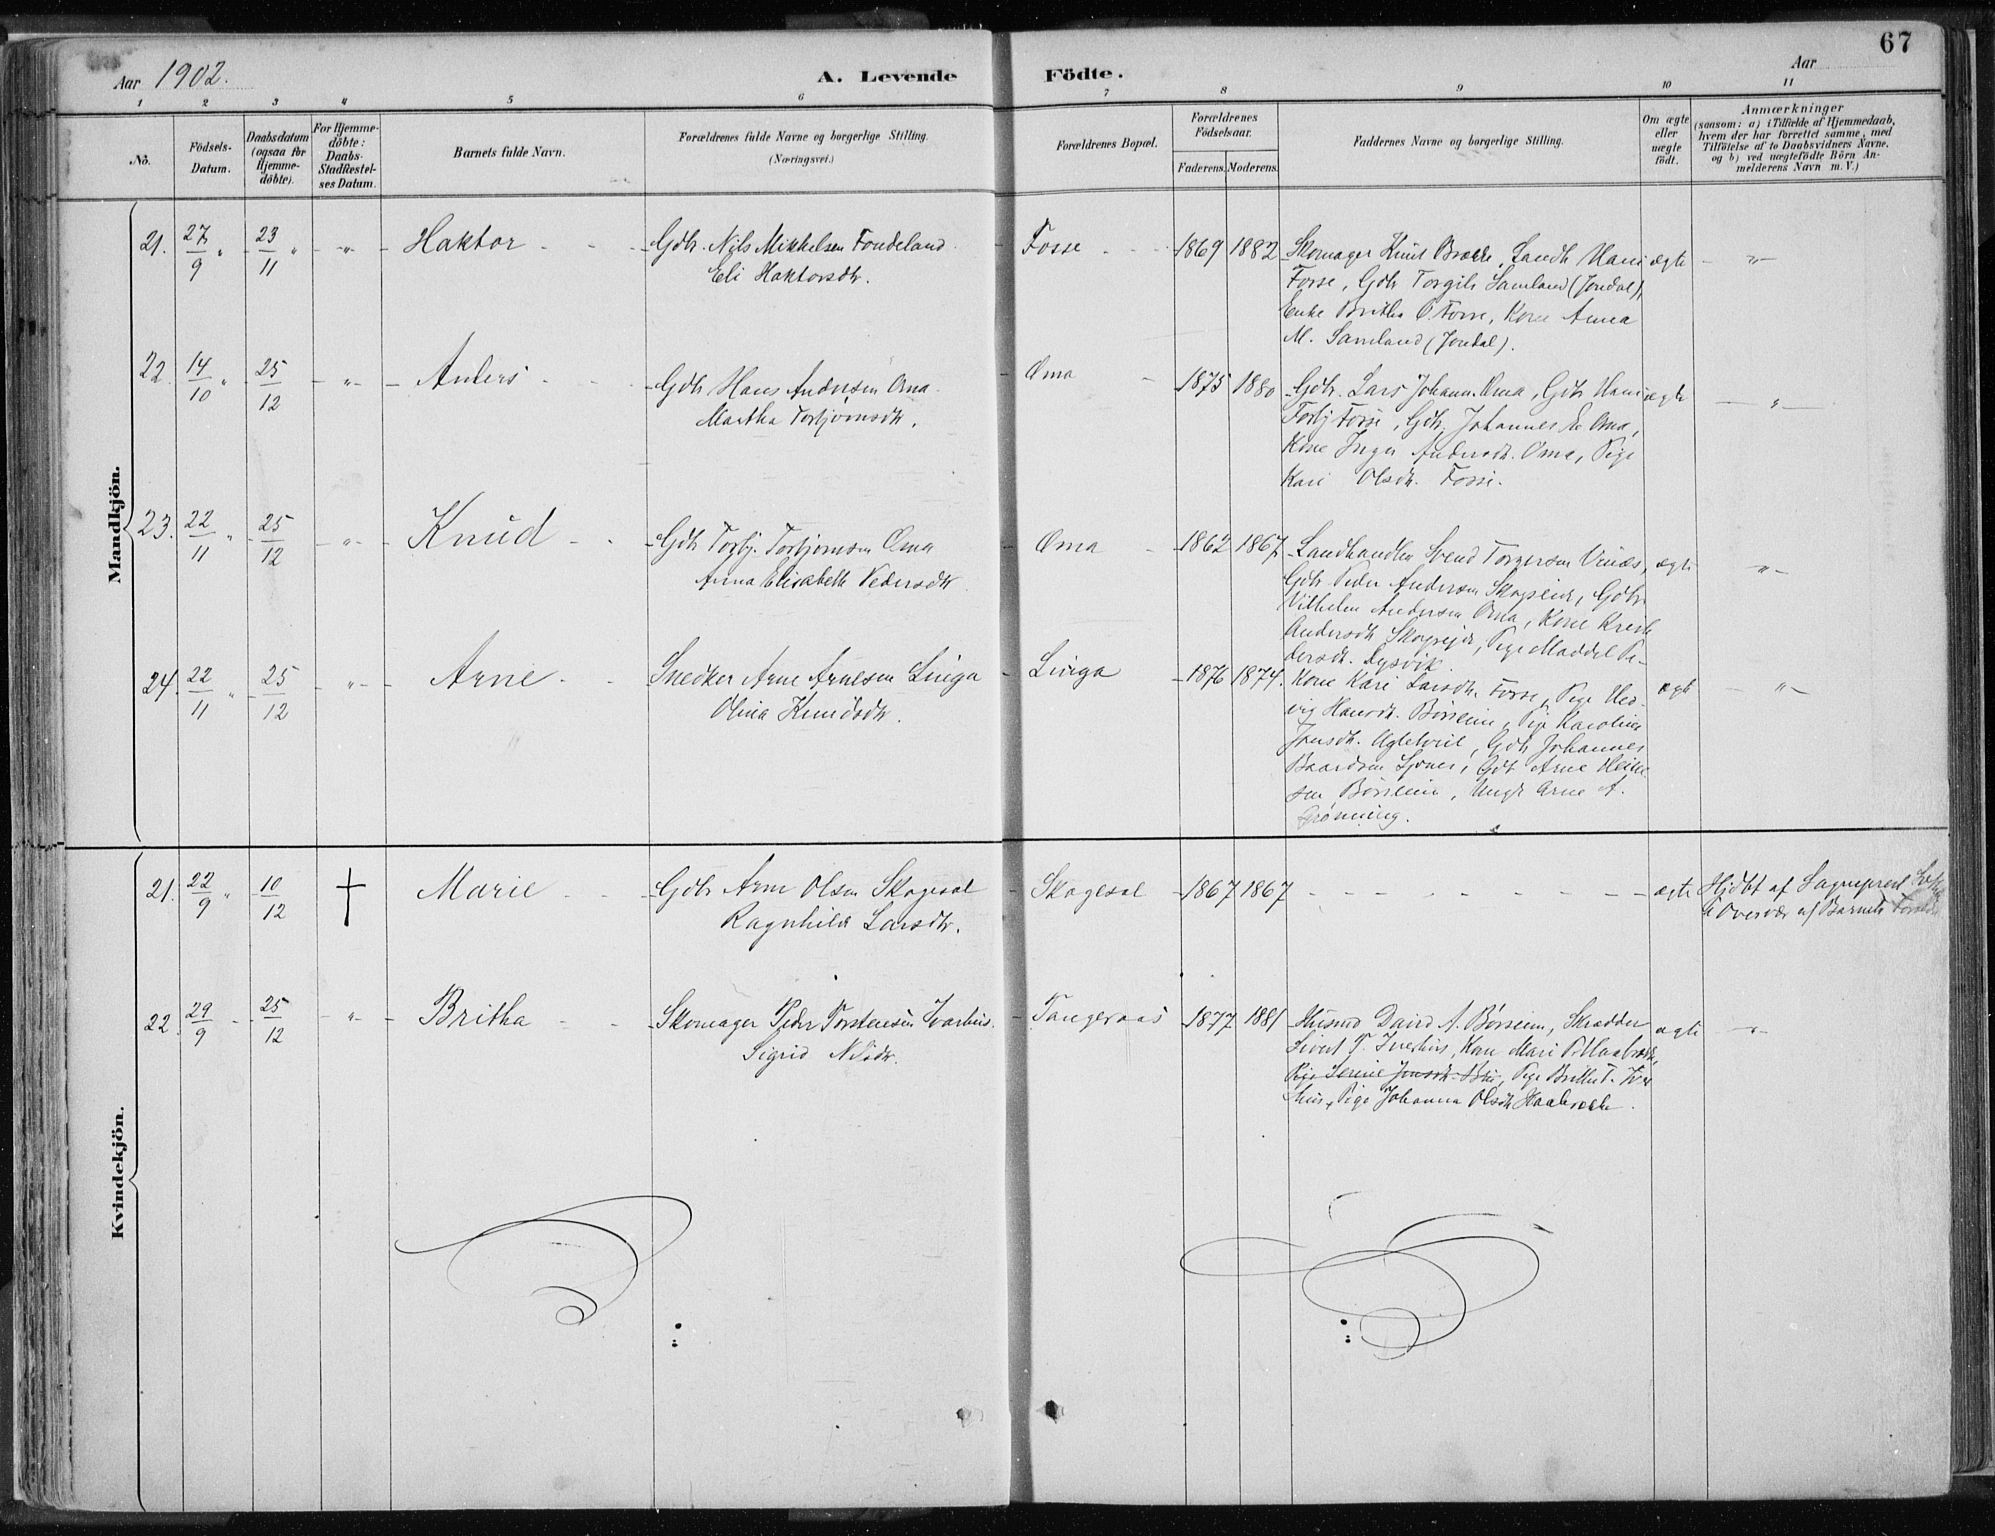 67
Aar 1902.
A. Levende Födte.
Aar
1 2 3 4 5 6 7 8 9 10 11
No.
Födsels-
Datum.
Daabsdatum
(ogsaa for
Hjemme-
döbte).
For Hjemme-
döbte:
Daabs-
Stadfæstel-
ses Datum.
Barnets fulde Navn.
Forældrenes fulde Navne og borgerlige Stilling.
(Næringsvei.)
Forældrenes Bopæl.
Forældrenes
Födselsaar.
Faderens. Moderens.
Faddernes Navne og borgerlige Stilling.
Om ægte
eller
uægte
födt.
Anmærkninger
(saasom: a) i Tilfælde af Hjemmedaab,
hvem der har forrettet samme, med
Tilföielse af to Daabsvidners Navne.
og b) ved uægtefödte Börn An-
melderens Navn m. V.)
Mandkjön.
21. 27/9 " 23/11 " - " - Haktor - - Gdbr. Nils Mikkelsen Fondeland
Eli Haktorsdtr.
Fosse - 1869 1882 Skomager Knut Brække, Landh Hans ægte - " -
Fosse, Gdbr Torgils Samland (Jondal),
Enke Britha O. Fosse, Kone Anna
M. Samland (Jondal).
22. 14/10 " 25/12 - " - Anders - - Gdbr Hans Andersen Oma
Martha Torbjörnsdtr.
Oma - 1875 1880 Gdbr. Lars Johann. Oma, Gdbr Hans ægte - " -
Torbj Fosse, Gdbr. Johannes Oma,
Kone Inger Andersdtr. Oma, Pige
Kari Olsdtr. Fosse.
23. 22/11 " 25/12 - " - Knud - - Gdbr Torbj. Torbjörnsen Oma
Anna Elisabeth Pedersdtr
Oma - 1862 1867 Landhandler Svend Torgersen Vinæs, ægte - " -
Gdbr Peder Andersen Skogseide, Gdbr
Vilhelm Andersen Oma, Kone
Andersdtr Skogseide, Pige Maddel Pe-
dersdtr. Lygsvik.
24. 22/11 " 25/12 - " - Arne - - Snedker Arne Arnesen Linga
Olina Knudsdtr.
Linga - 1876 1874. Kone Kari Larsdtr. Fosse, Pige Hed- ægte - " -
vig Hansdtr. Börseim, Pige Karoline
Jonsdtr. , Gdbr Johannes
Baardsen , Gdbr Arne
sen Börseim, Ungk Arne A.
Grönning.
Kvindekjön.
21. 22/9 " 10/12 † Marie - - Gdbr Arne Olsen Skogesal
Ragnhild Larsdtr.
Skogesal - 1867 1867 - - - - - - - ægte Hjdbt af Sognepræst
i Overvær af Barnets Forældre
22. 29/9 - 25/12 - " - Britha - - Skomager Peder Torstensen Ivarhus.
Sigrid Nilsdtr.
Tangeraas - 1877 1881 Husmd David A. Börseim, Skrædder ægte - " -
Sivert T. Ivarhus, Kone Mari P. Haabrække,
Pige Serine Jonsdtr. , Pige Britha T. Ivar
hus, Pige Johanna Olsdtr Haabrække.